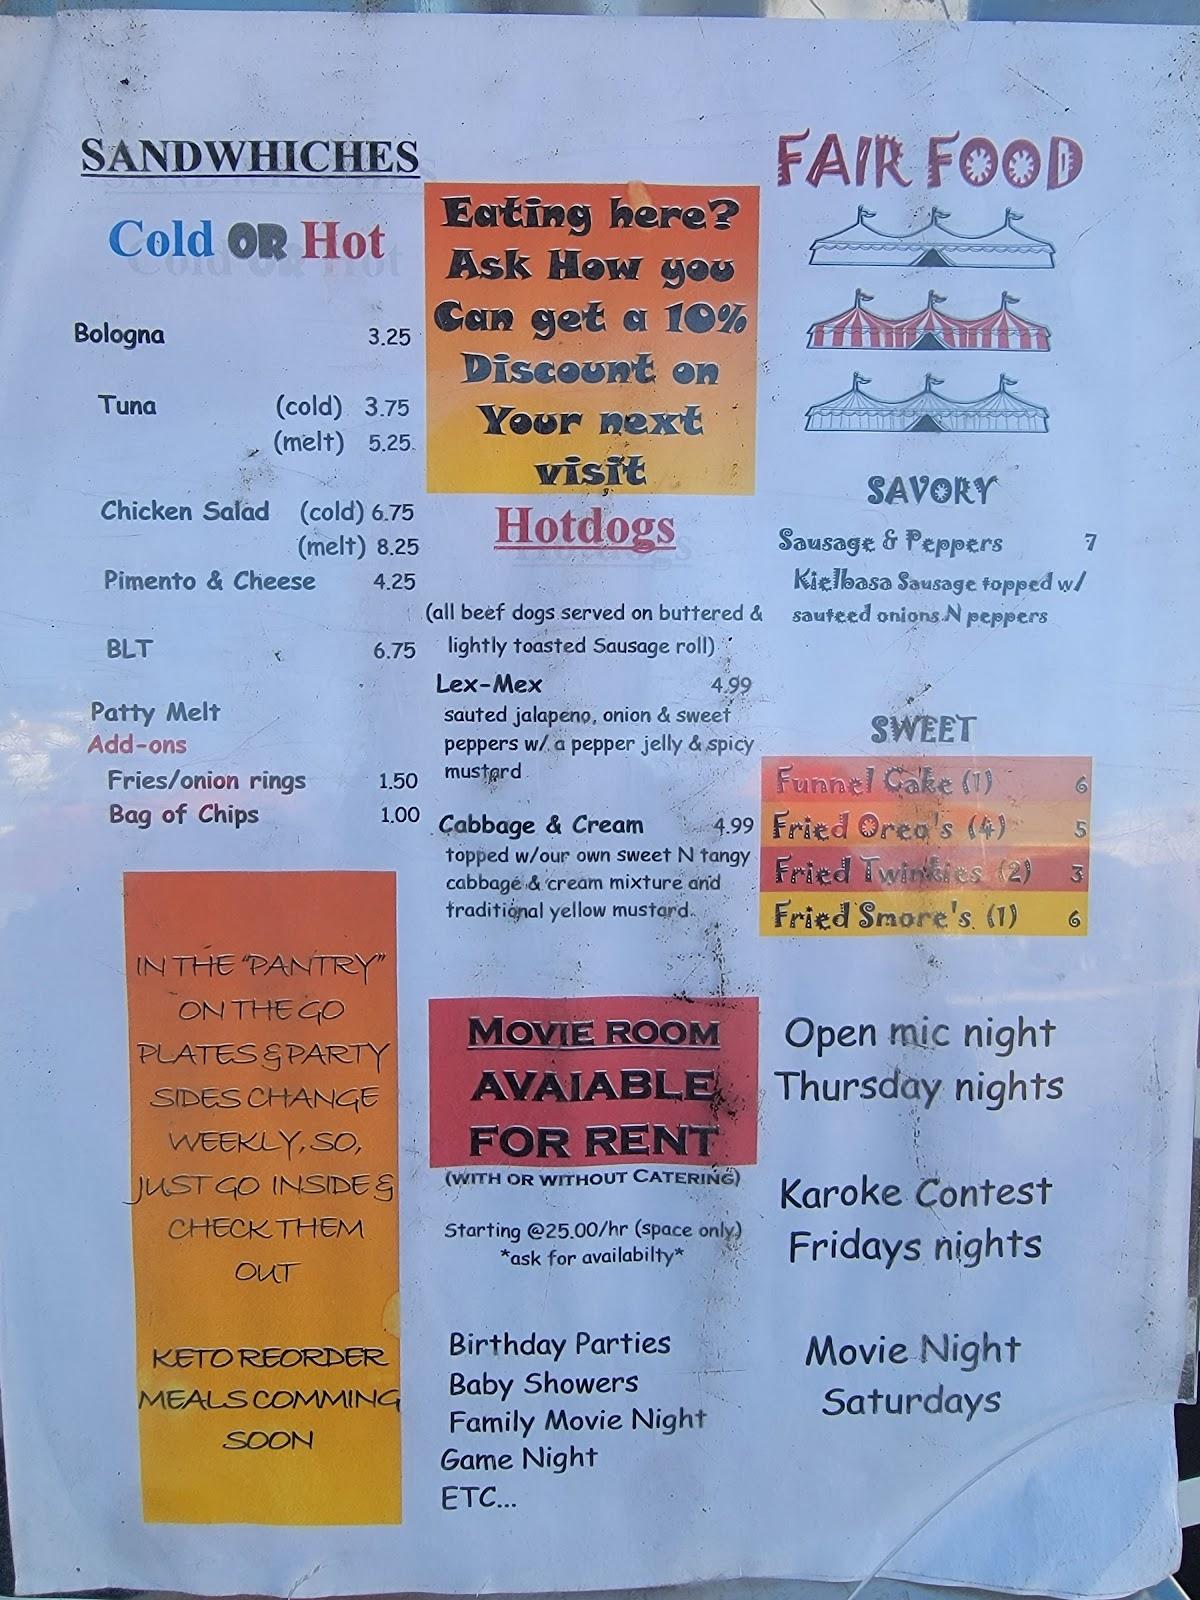 SANDWHICHES
Cold OR Hot
Bologna 3.25
Tuna (cold) 3.75
(melt) 5.25
Chicken Salad (cold) 6.75
(melt) 8.25
Pimento & Cheese 4.25
BLT 6.75
Patty Melt
Add-ons
Fries/onion rings 1.50
Bag of Chips 1.00
IN THE "PANTRY"
ON THE GO
PLATES & PARTY
SIDES CHANGE
WEEKLY, SO,
JUST GO INSIDE &
CHECK THEM
OUT
KETO REORDER
MEALS COMMING
SOON
Eating here?
Ask How you
Can get a 10%
Discount on
Your next
visit
Hotdogs
(all beef dogs served on buttered &
lightly toasted Sausage roll)
Lex-Mex 4.99
sauted jalapeno, onion & sweet
peppers w/ a pepper jelly & spicy
mustard
Cabbage & Cream 4.99
topped w/our own sweet N tangy
cabbage & cream mixture and
traditional yellow mustard.
MOVIE ROOM
AVAIABLE
FOR RENT
(WITH OR WITHOUT CATERING)
Starting @25.00/hr (space only)
*ask for availabilty*
Birthday Parties
Baby Showers
Family Movie Night
Game Night
ETC...
FAIR FOOD
SAVORY
Sausage & Peppers 7
Kielbasa Sausage topped w/
sauteed onions N peppers
SWEET
Funnel Cake (1) 6
Fried Oreo's (4) 5
Fried Twinkies (2) 3
Fried Smore's (1) 6
Open mic night
Thursday nights
Karoke Contest
Fridays nights
Movie Night
Saturdays